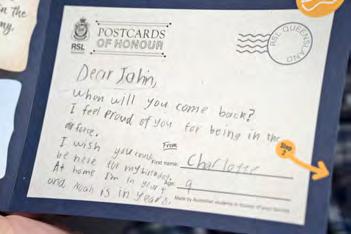 in the
my.
RSL
POSTCARDS
OF HONOUR
RSL QUEENSLAND
Dear John,
When will you come back?
I feel proud of you for being in the
airforce.
I wish you could
be here for my birthday.
At home I'm in year 4
and Noah is in year 2.
From
First name: Charlotte
Age: 9
Step
2
Made by Australian students in honour of